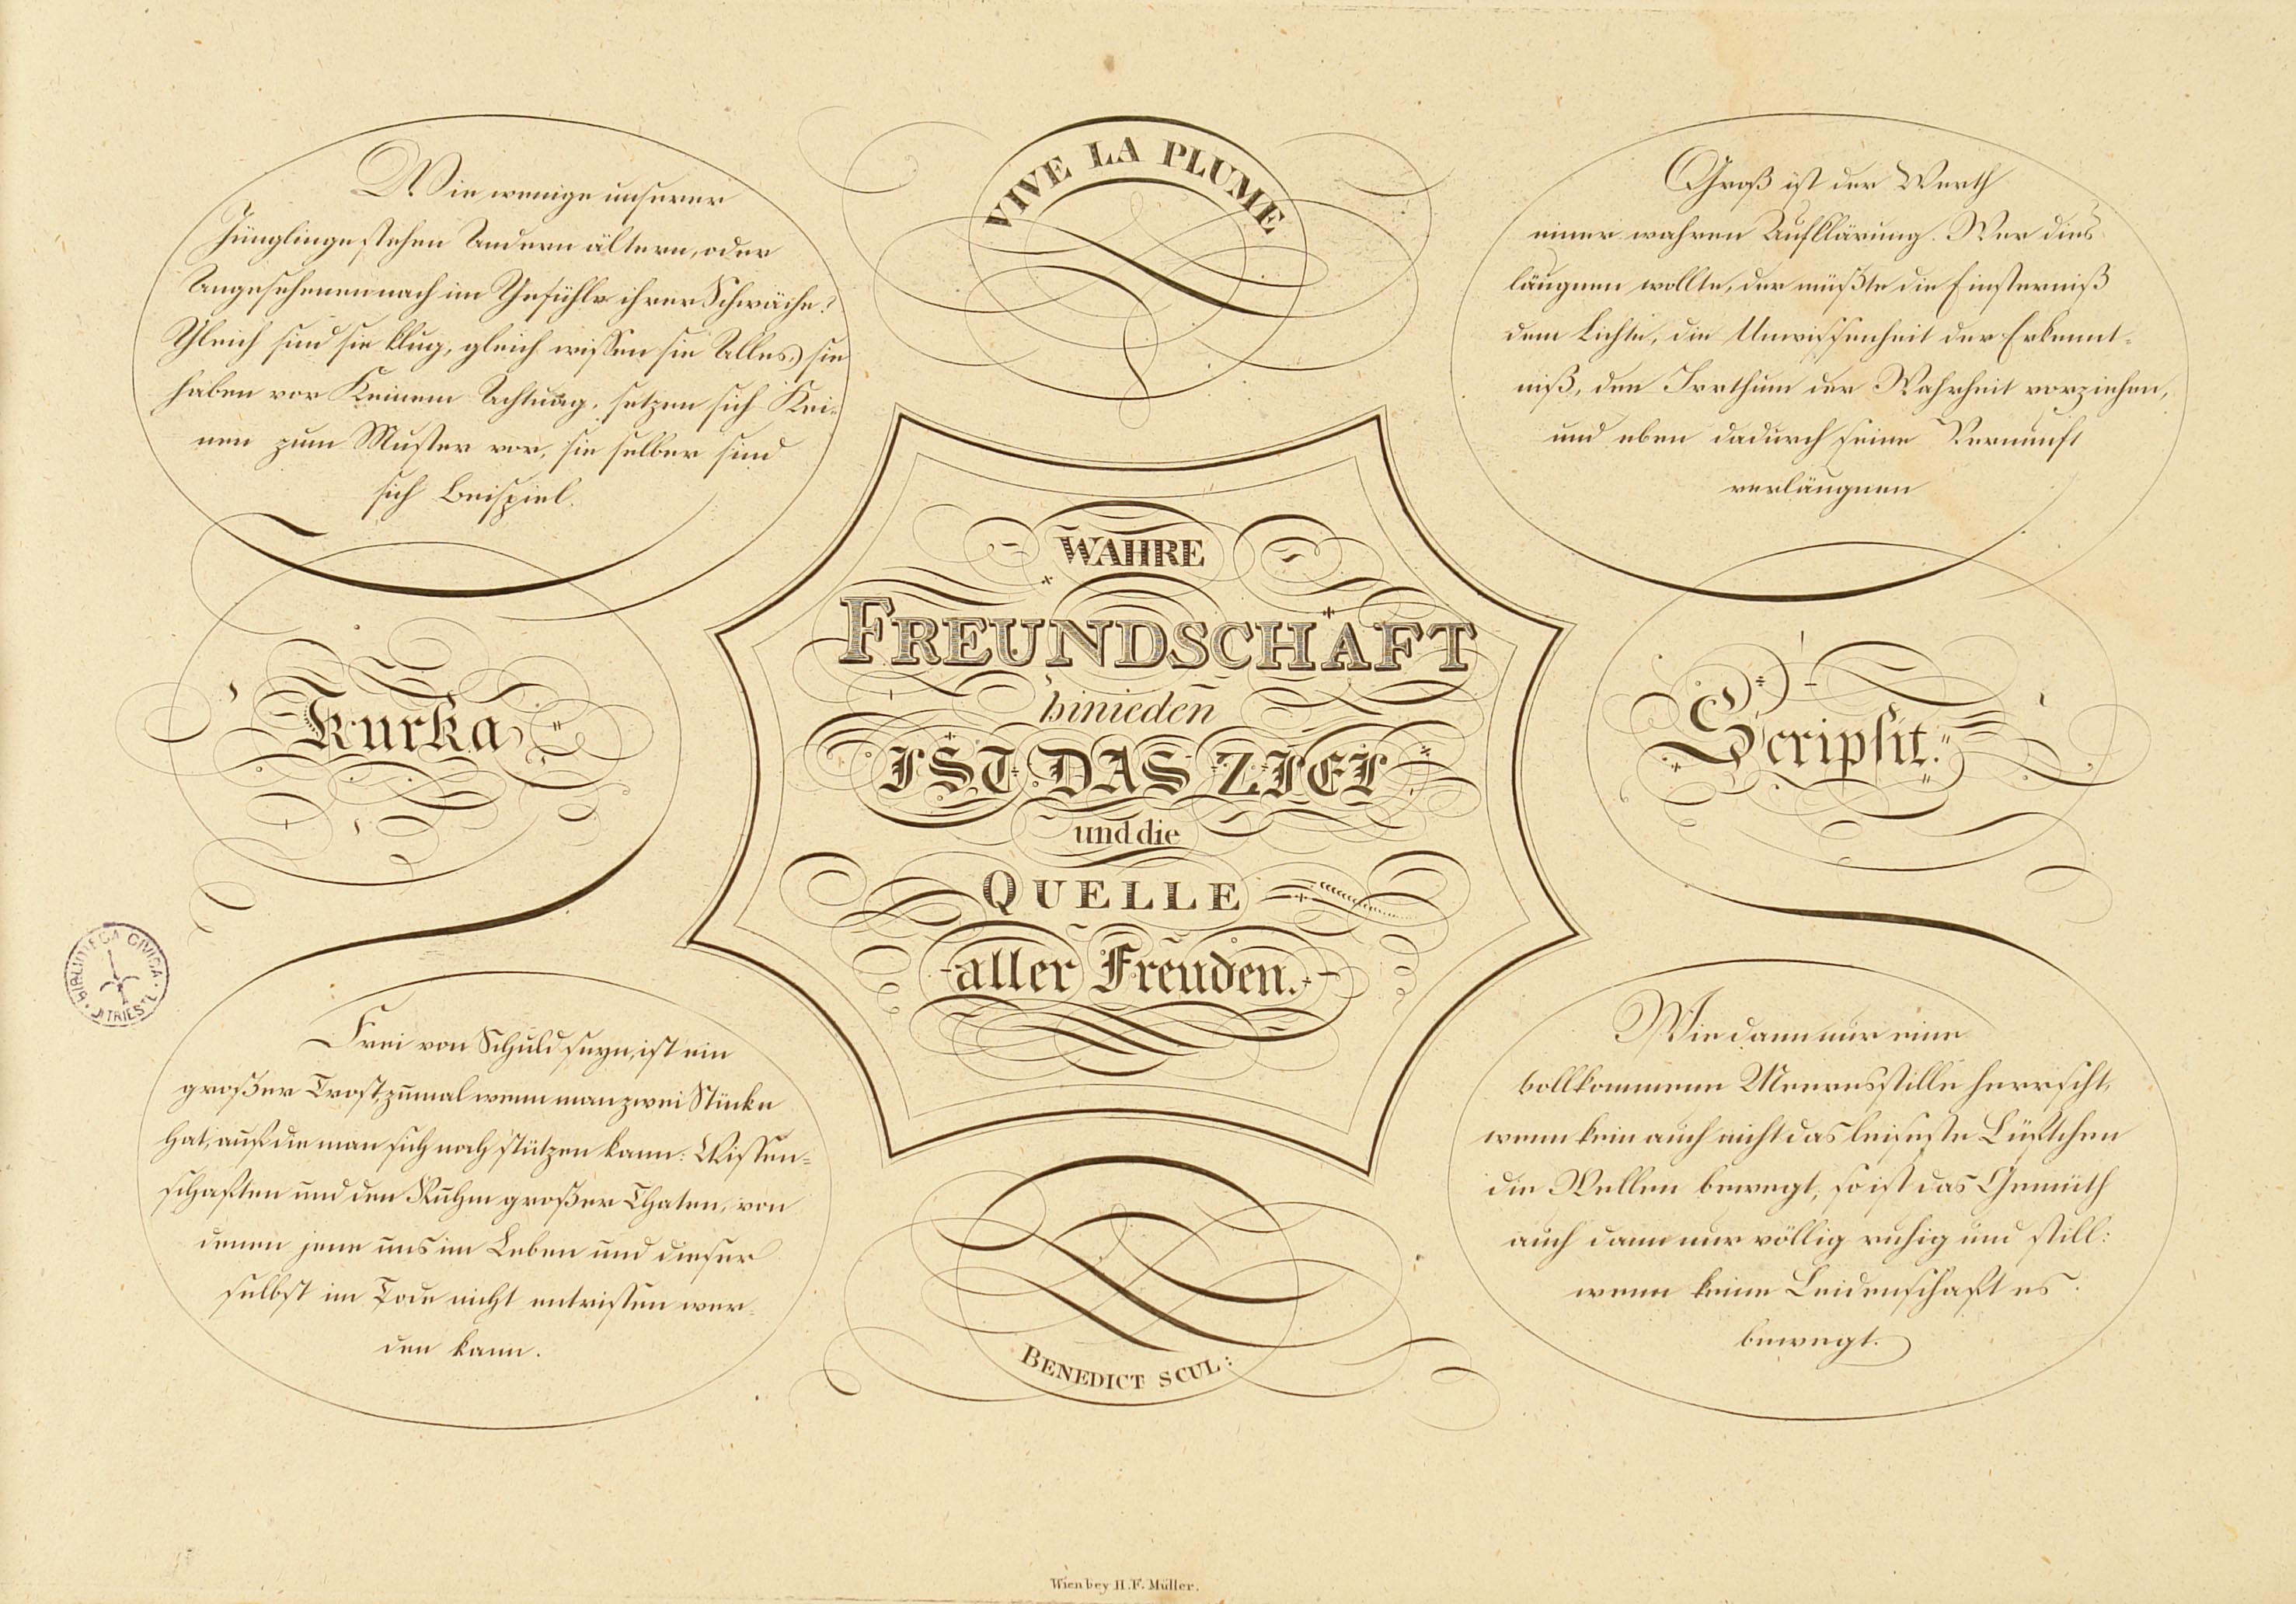 VIVE LA PLUME
Wie wenige unserer
Jünglinge stehen Andern ältern, oder
Angesehenen nach im Gefühle ihrer Schwäche?
Gleich sind sie klug, gleich wissen sie Alles, sie
haben vor Keinem Achtung, setzen sich Kei-
nen zum Muster vor, sie selber sind
sich Beispiel.
Groß ist der Werth
einer wahren Aufklärung. Wer dies
läugnen wollte, der müßte die Finsterniß
dem Lichte, die Unwissenheit der Erkennt-
niß, den Irrthum der Wahrheit vorziehen,
und eben dadurch seine Vernunft
verläugnen
WAHRE
FREUNDSCHAFT
hinieden
IST DAS ZIEL
und die
QUELLE
aller Freuden.
Kurka
Scripsit.
Frei von Schuld seyn, ist ein
großer Trost zumal wenn man zwei Stücke
hat, auf die man sich noch stützen kann: Wissen=
schaften und den Ruhm großer Thaten, von
denen jene uns im Leben und dieser
selbst im Tode nicht entrissen wer-
den kann.
Wie dann nur eine
vollkommene Meeresstille herrscht,
wenn kein auch nicht das leiseste Lüftchen
die Wellen bewegt, so ist das Gemüth
auch dann nur völlig ruhig und still:
wenn keine Leidenschaft es
bewegt.
BENEDICT SCUL:
BIBLIOTECA CIVICA
DI TRIESTE
Wien bey H. F. Müller.